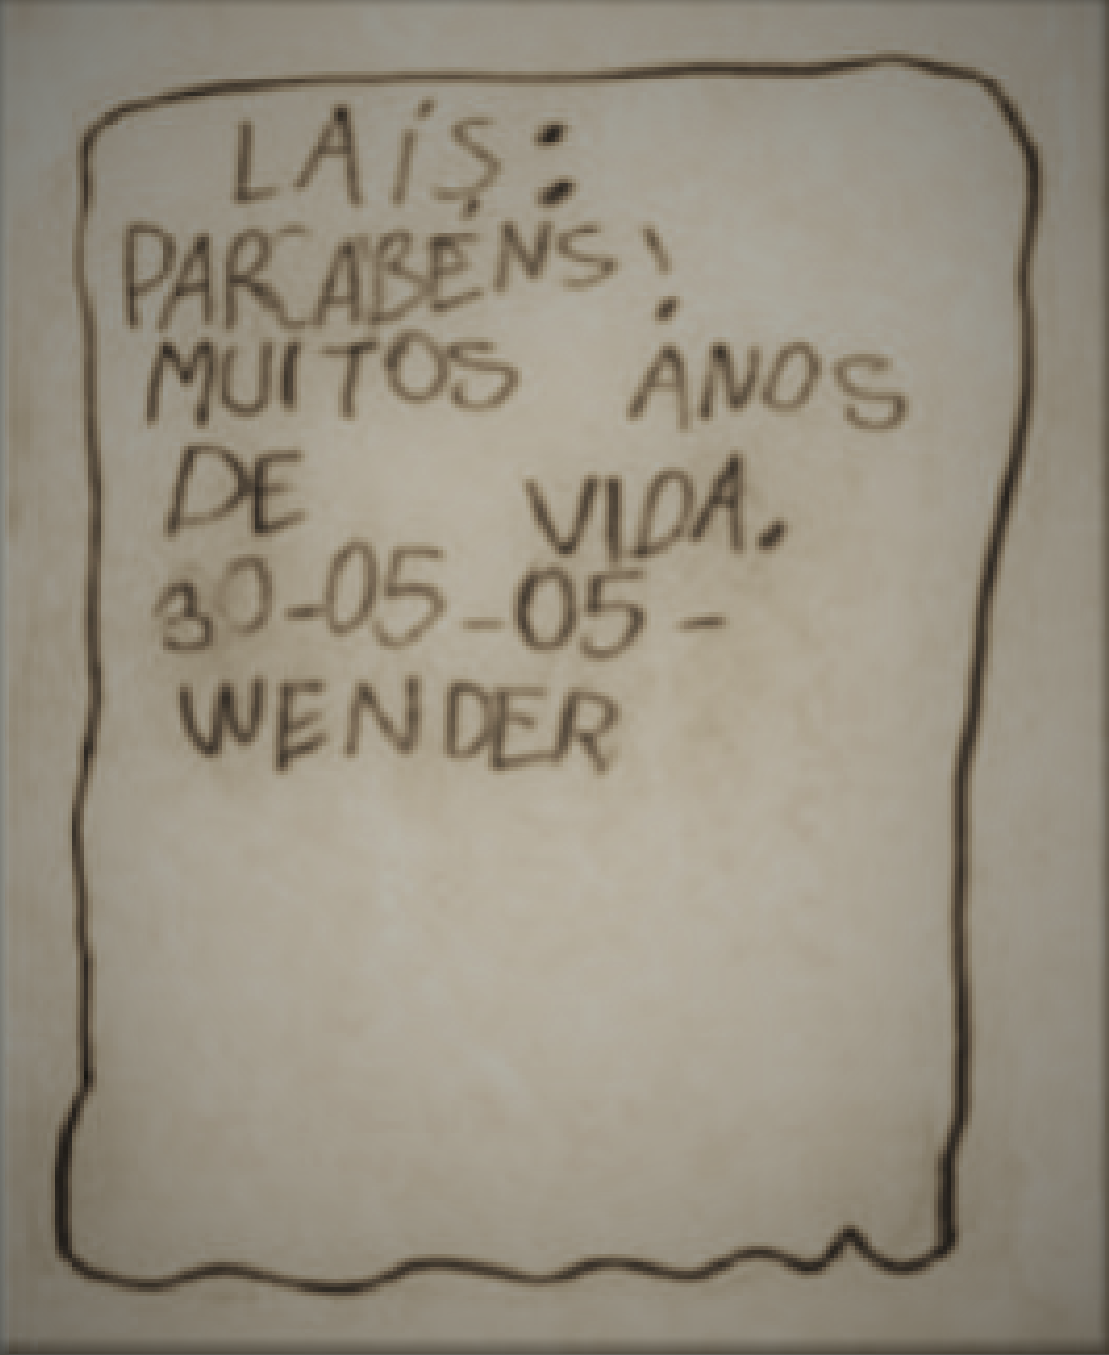 LAÍS:
PARABÉNS!
MUITOS ANOS
DE VIDA.
30-05-05-
WENDER